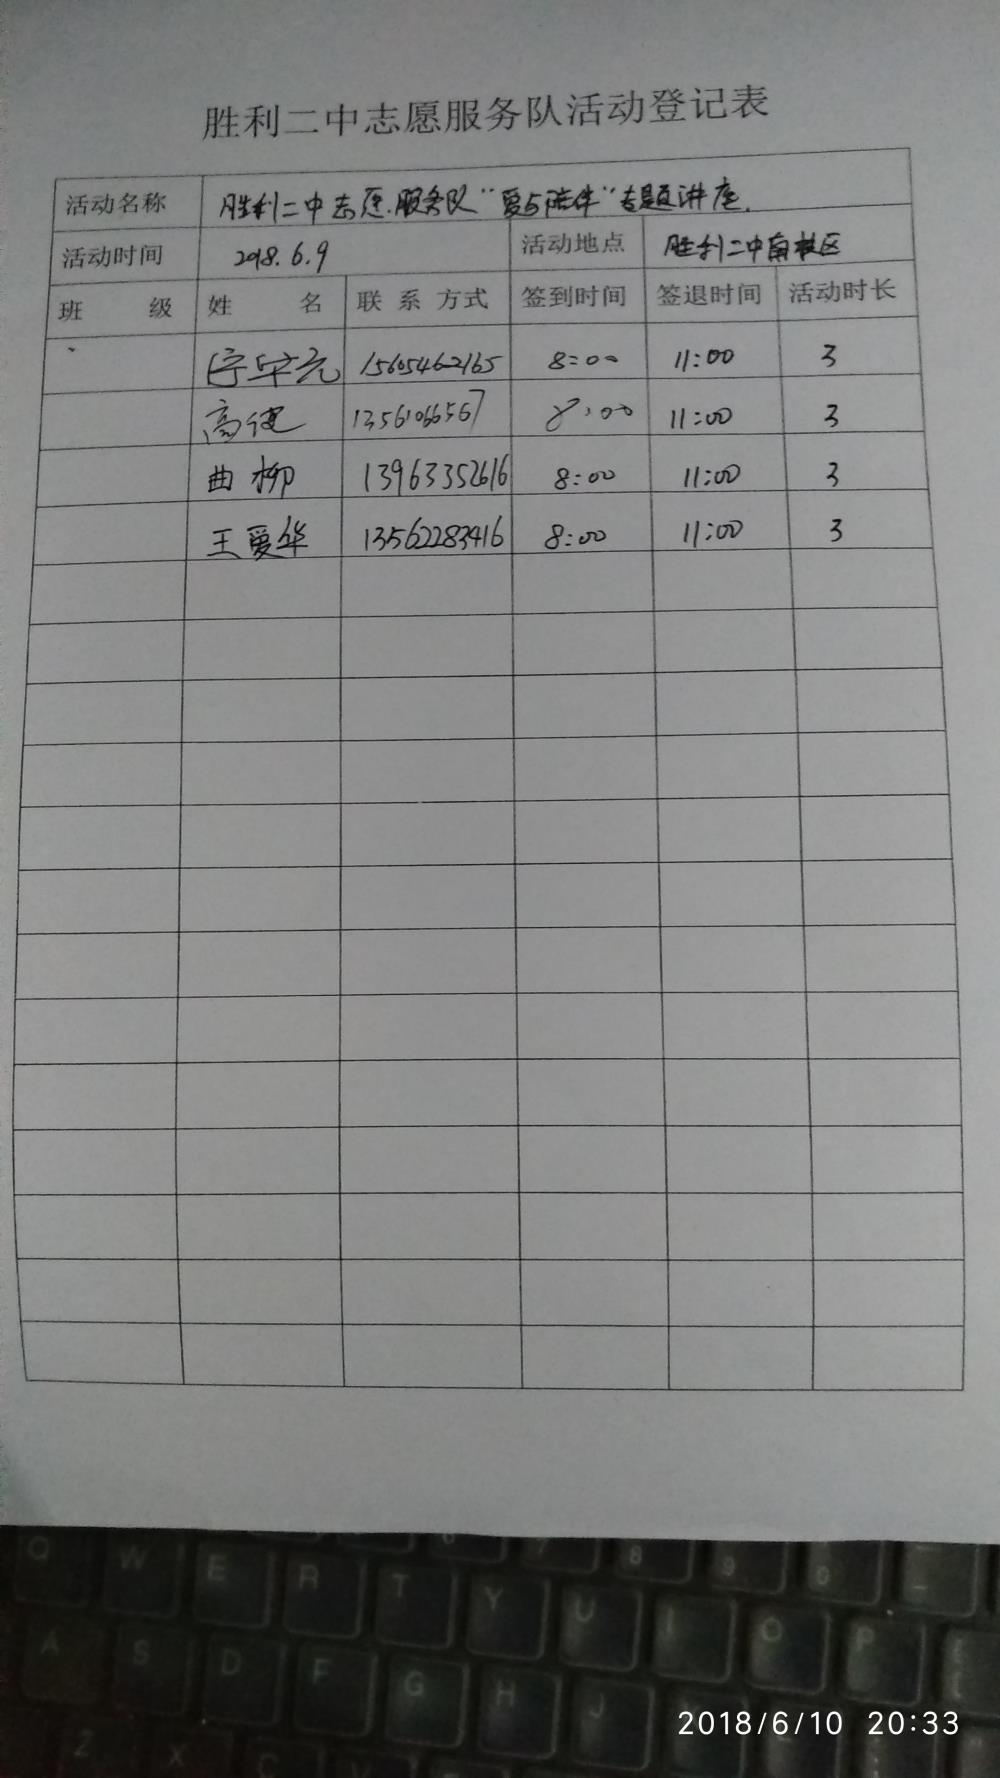 胜利二中志愿服务队活动登记表
活动名称 胜利二中志愿服务队“爱与陪伴”专题讲座.
活动时间 2018.6.9 活动地点 胜利二中南校区
班 级 姓 名 联系方式 签到时间 签退时间 活动时长
15605462165 8:00 11:00 3
高健 13561066567 8:00 11:00 3
曲柳 13963352616 8:00 11:00 3
王爱华 13562283416 8:00 11:00 3
Q W E R T Y U I O P
A S D F G H J
Z X C V
2018/6/10 20:33